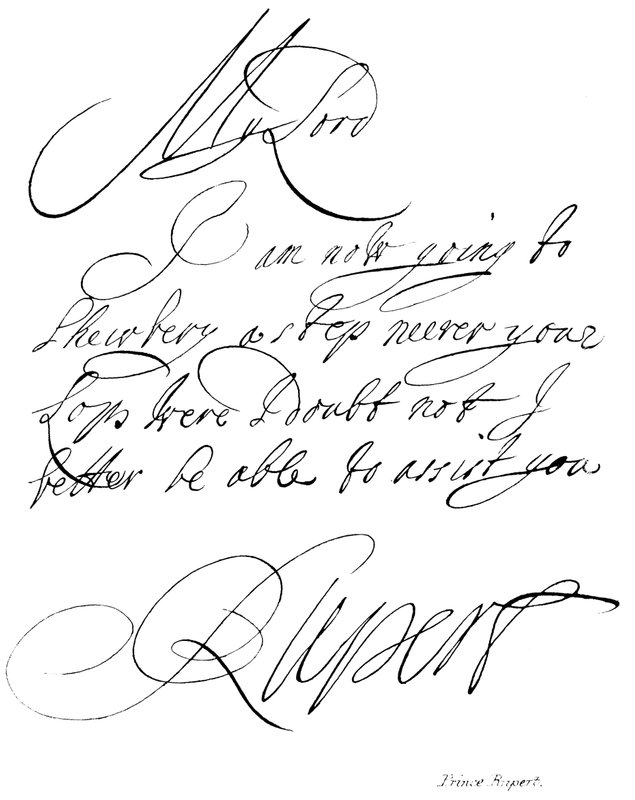 My Lord
I am now going to
Shewbery a step neerer your
Lops where I doubt not I
better be able to assist you
Rupert
Prince Rupert.